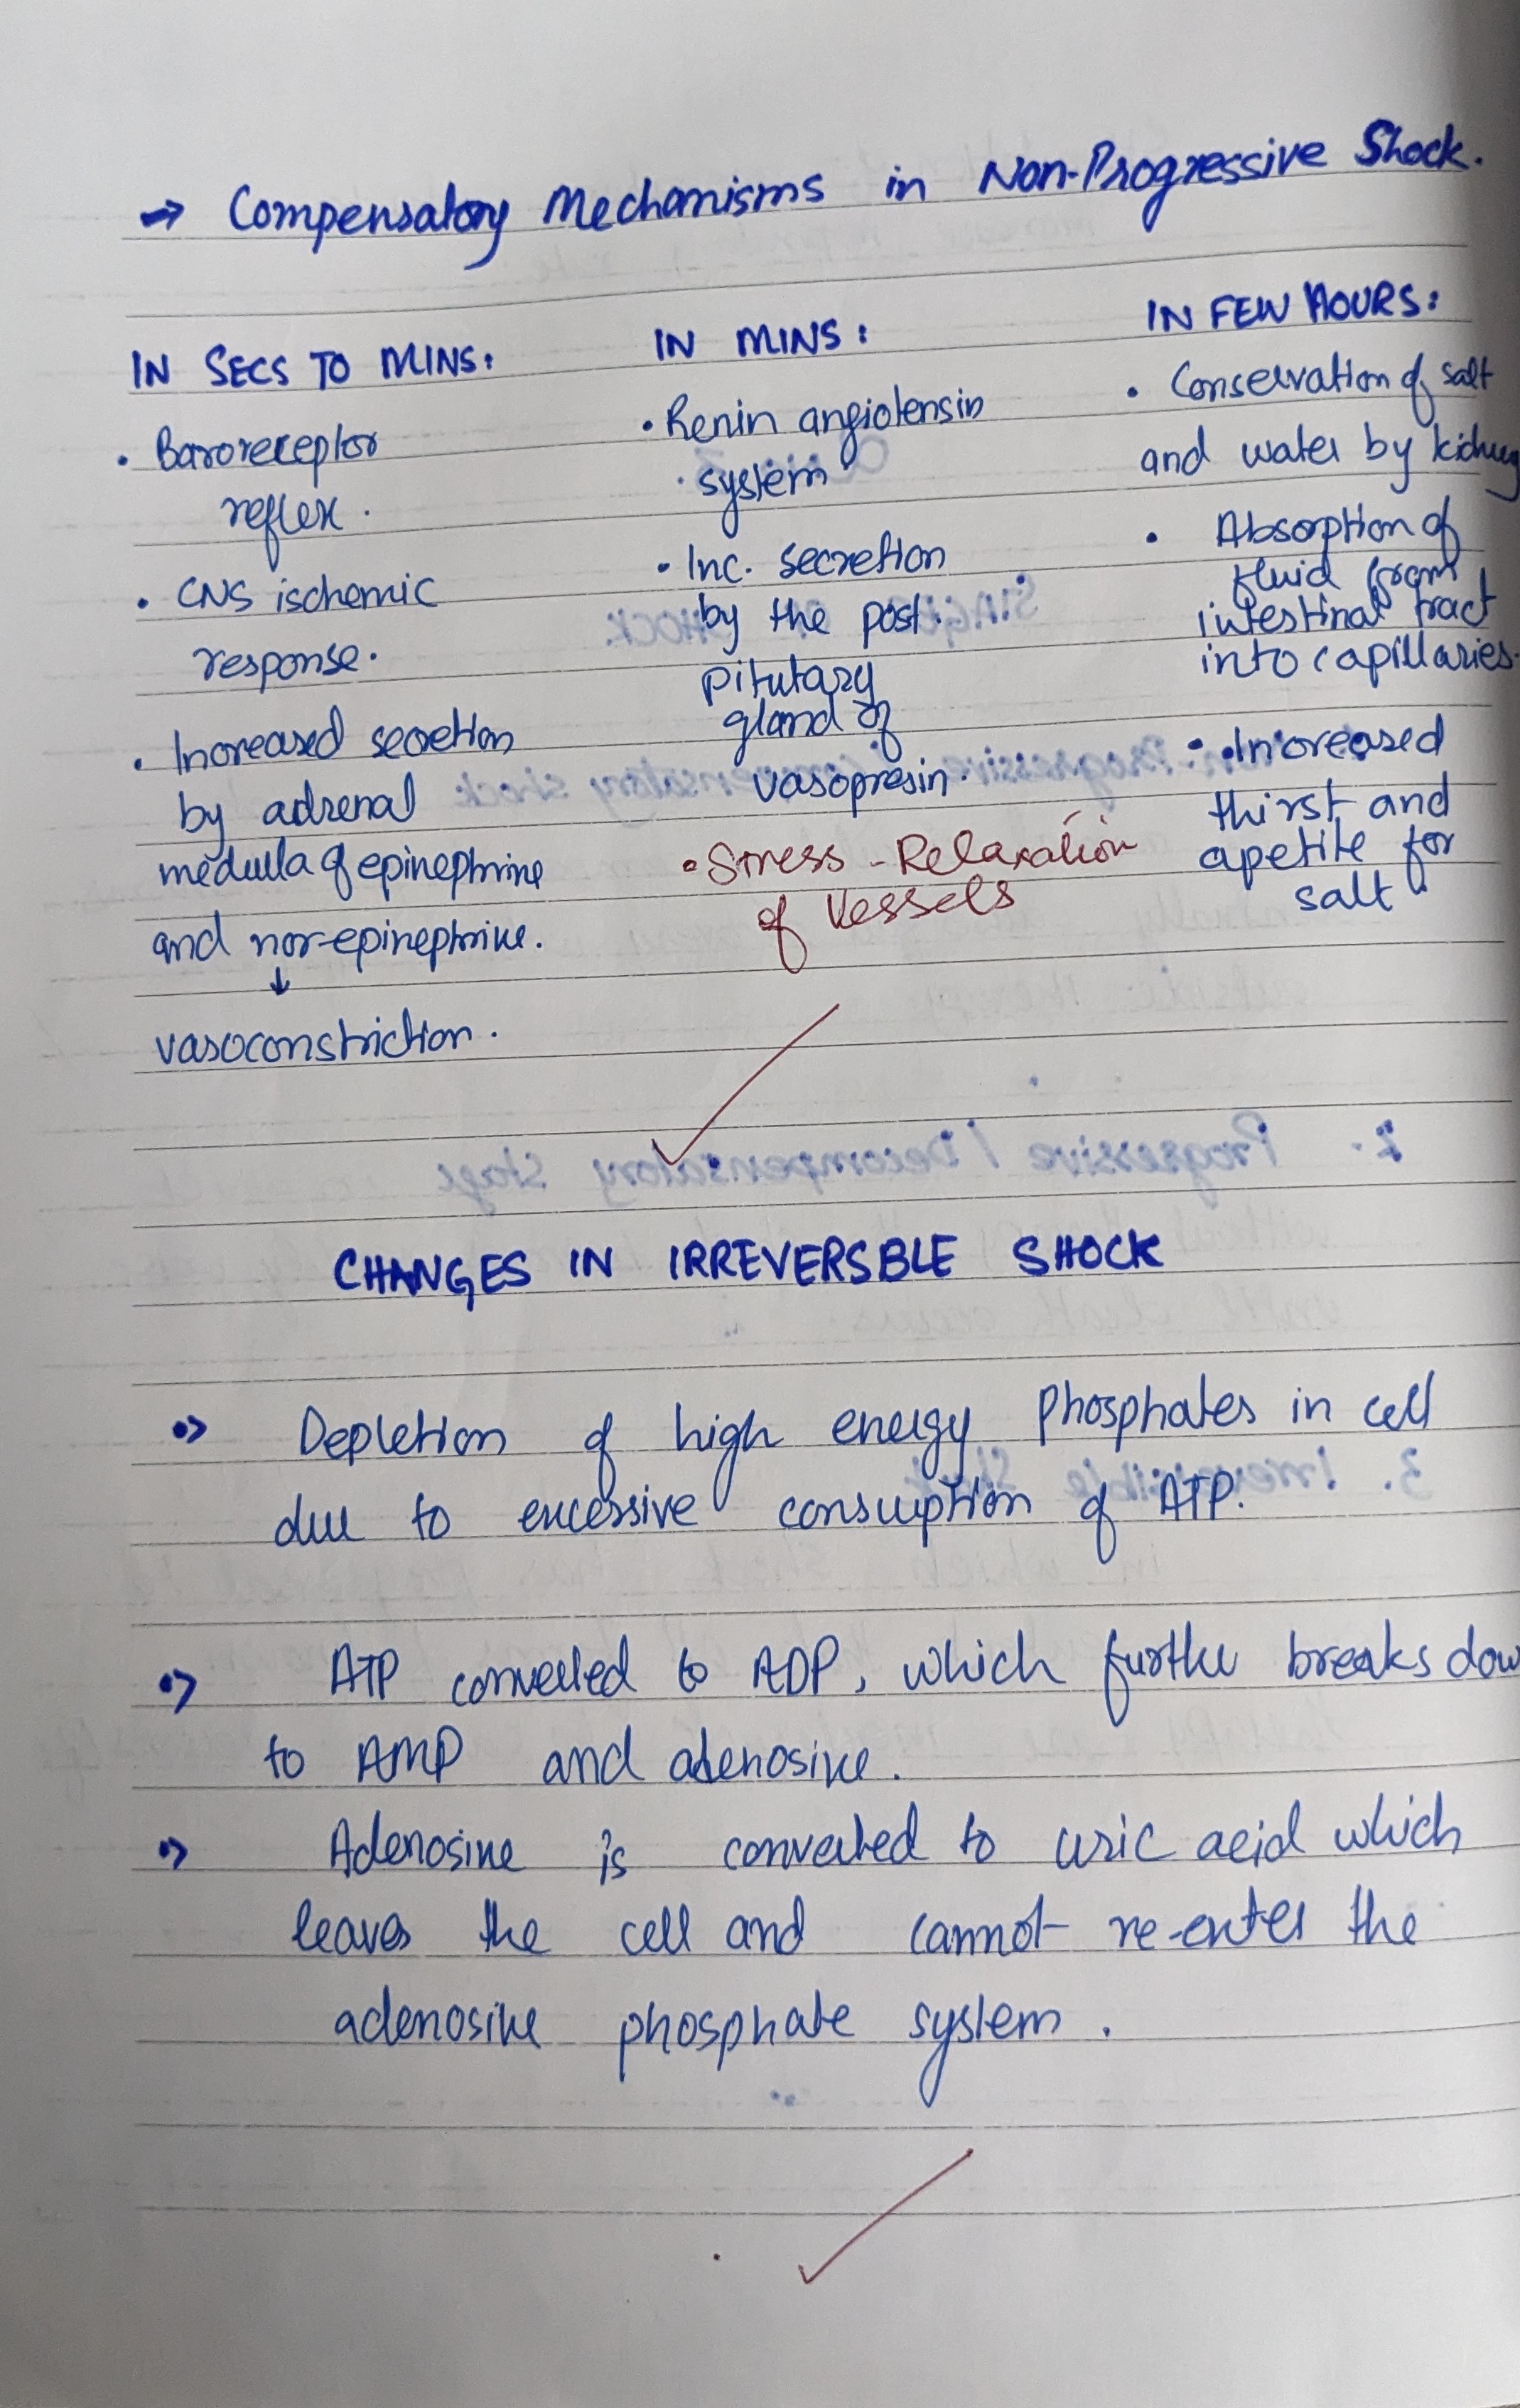 → Compensatory Mechanisms in Non-Progressive Shock.
IN SECS TO MINS:
• Baroreceptor
reflex.
• CNS ischemic
response.
• Increased secretion
by adrenal
medulla of epinephrine
and nor-epinephrine.
↓
vasoconstriction.
IN MINS:
• Renin angiotensin
system
• Inc. secretion
by the post.
pitutary
gland of
vasopresin.
• Stress-Relaxation
of Vessels
IN FEW HOURS:
• Conservation of salt
and water by kidney
• Absorption of
fluid from
intestinal tract
into capillaries.
• Increased
thirst and
apetite for
salt
CHANGES IN IRREVERSBLE SHOCK
Depletion of high energy phosphates in cell
due to excessive consuption of ATP.
ATP converted to ADP, which further breaks dow
to AMP and adenosine.
Adenosine is converted to uric acid which
leaves the cell and cannot re-enter the
adenosine phosphate system.